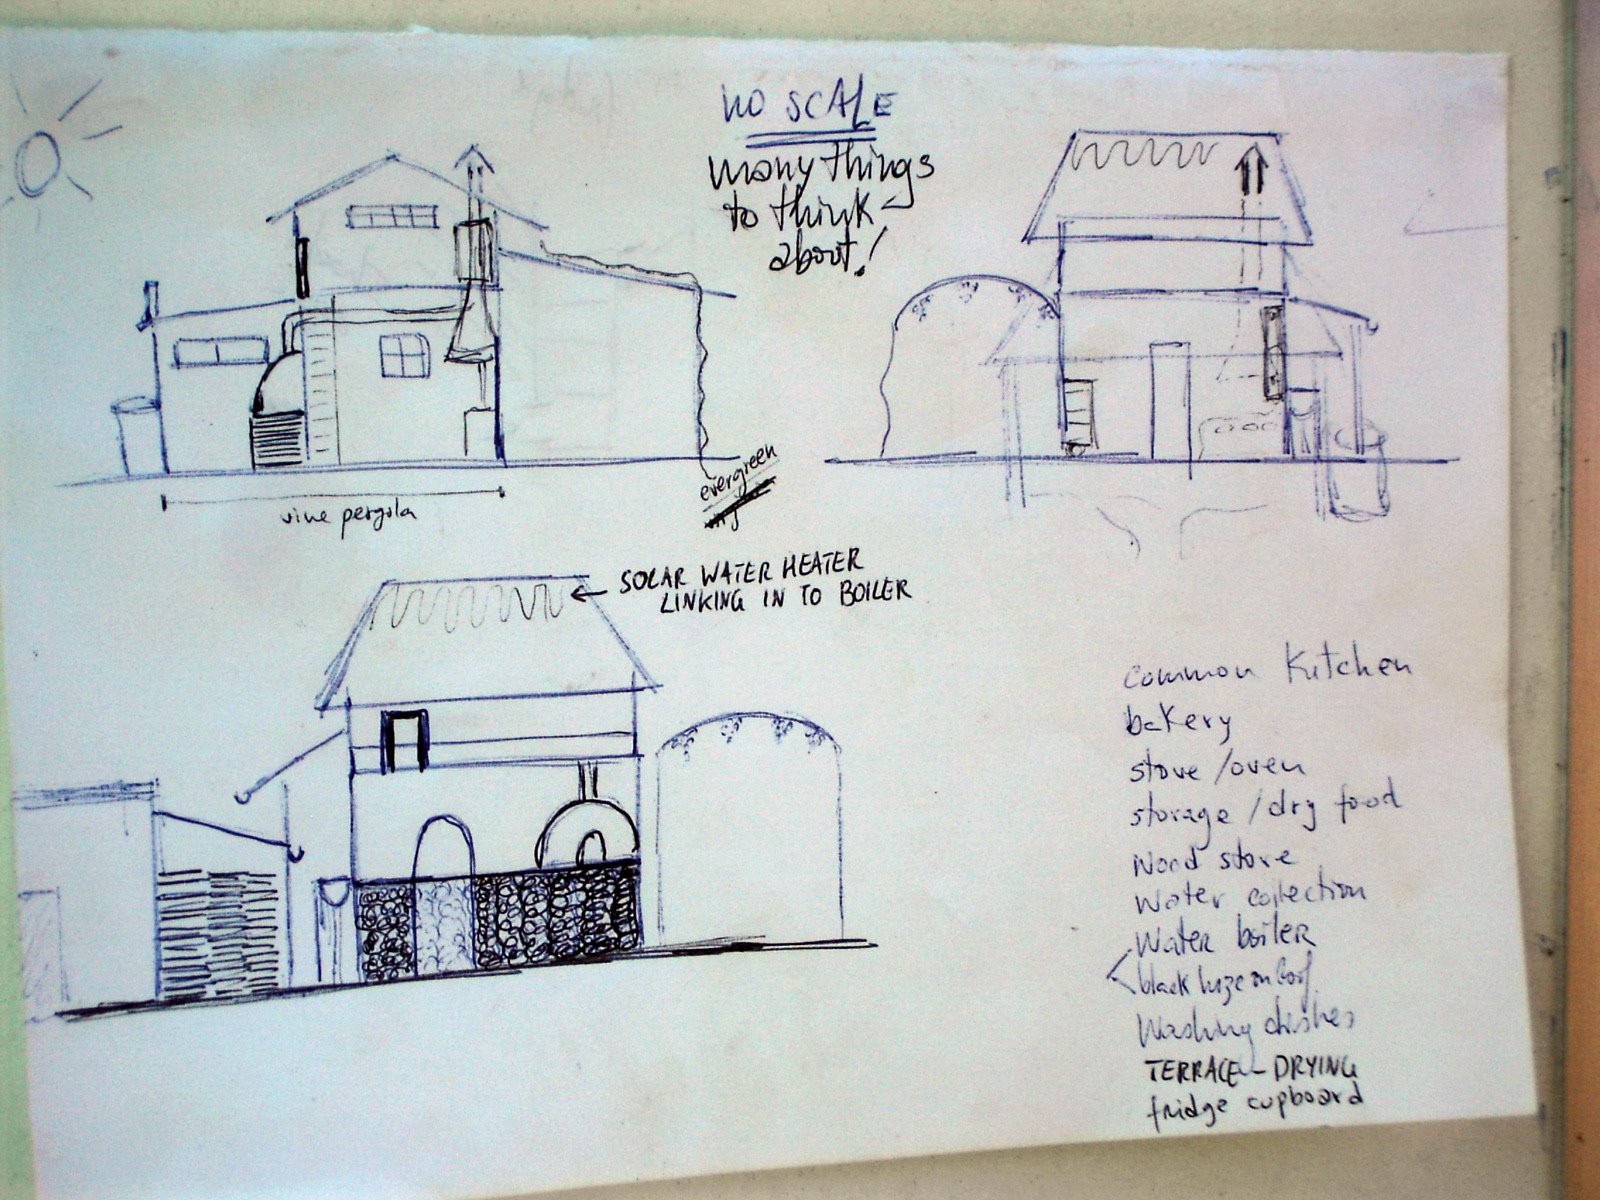 NO SCALE
many things
to think
about!
vine pergola
evergreen
SOLAR WATER HEATER
LINKING IN TO BOILER
common Kitchen
bakery
stove / oven
storage / dry food
Wood store
Water collection
Water boiler
black hoze on roof
Washing dishes
TERRACE - DRYING
fridge cupboard